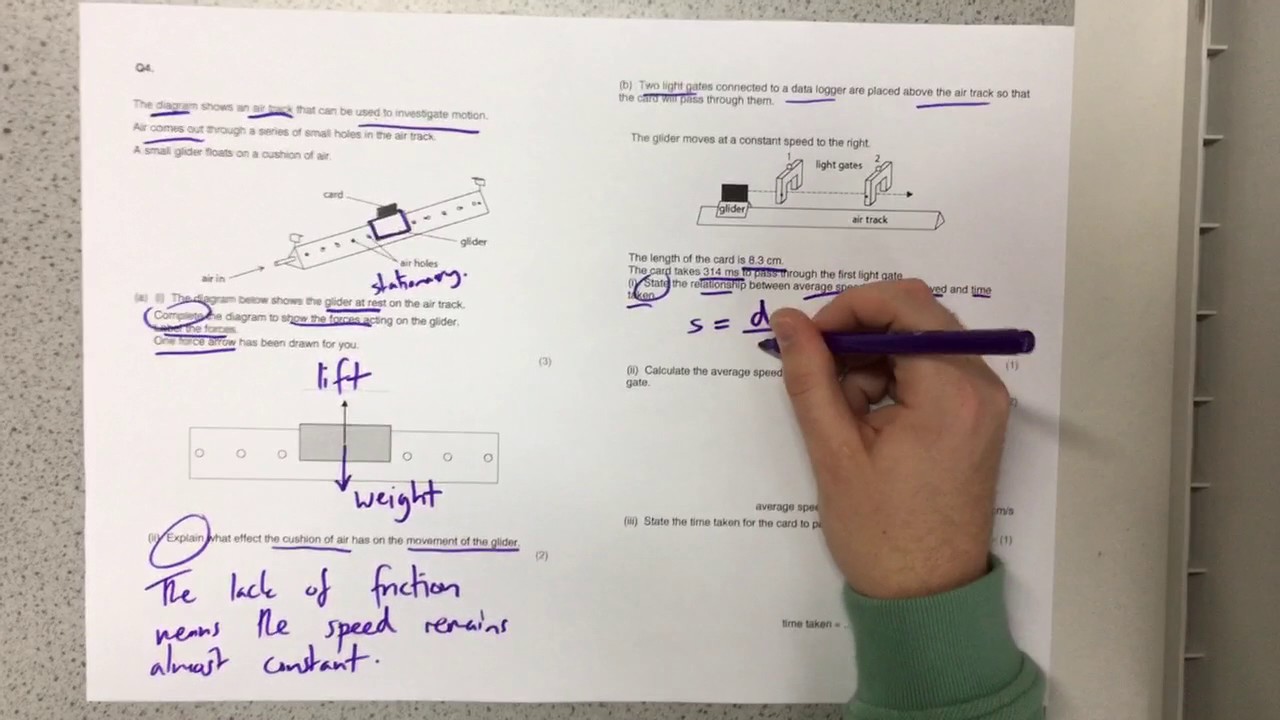 Q4.
The diagram shows an air track that can be used to investigate motion.
Air comes out through a series of small holes in the air track.
A small glider floats on a cushion of air.
card
glider
air holes
air in
stationary.
(a) (i) The diagram below shows the glider at rest on the air track.
Complete the diagram to show the forces acting on the glider.
Label the forces.
One force arrow has been drawn for you.
(3)
lift
weight
(ii) Explain what effect the cushion of air has on the movement of the glider.
(2)
The lack of friction
means the speed remains
almost constant.
(b) Two light gates connected to a data logger are placed above the air track so that
the card will pass through them.
The glider moves at a constant speed to the right.
1
light gates
2
glider
air track
The length of the card is 8.3 cm.
The card takes 314 ms to pass through the first light gate
(i) State the relationship between average and time
taken
s = d
(1)
(ii) Calculate the average speed
gate.
average
cm/s
(iii) State the time taken for the card to
(1)
time taken =